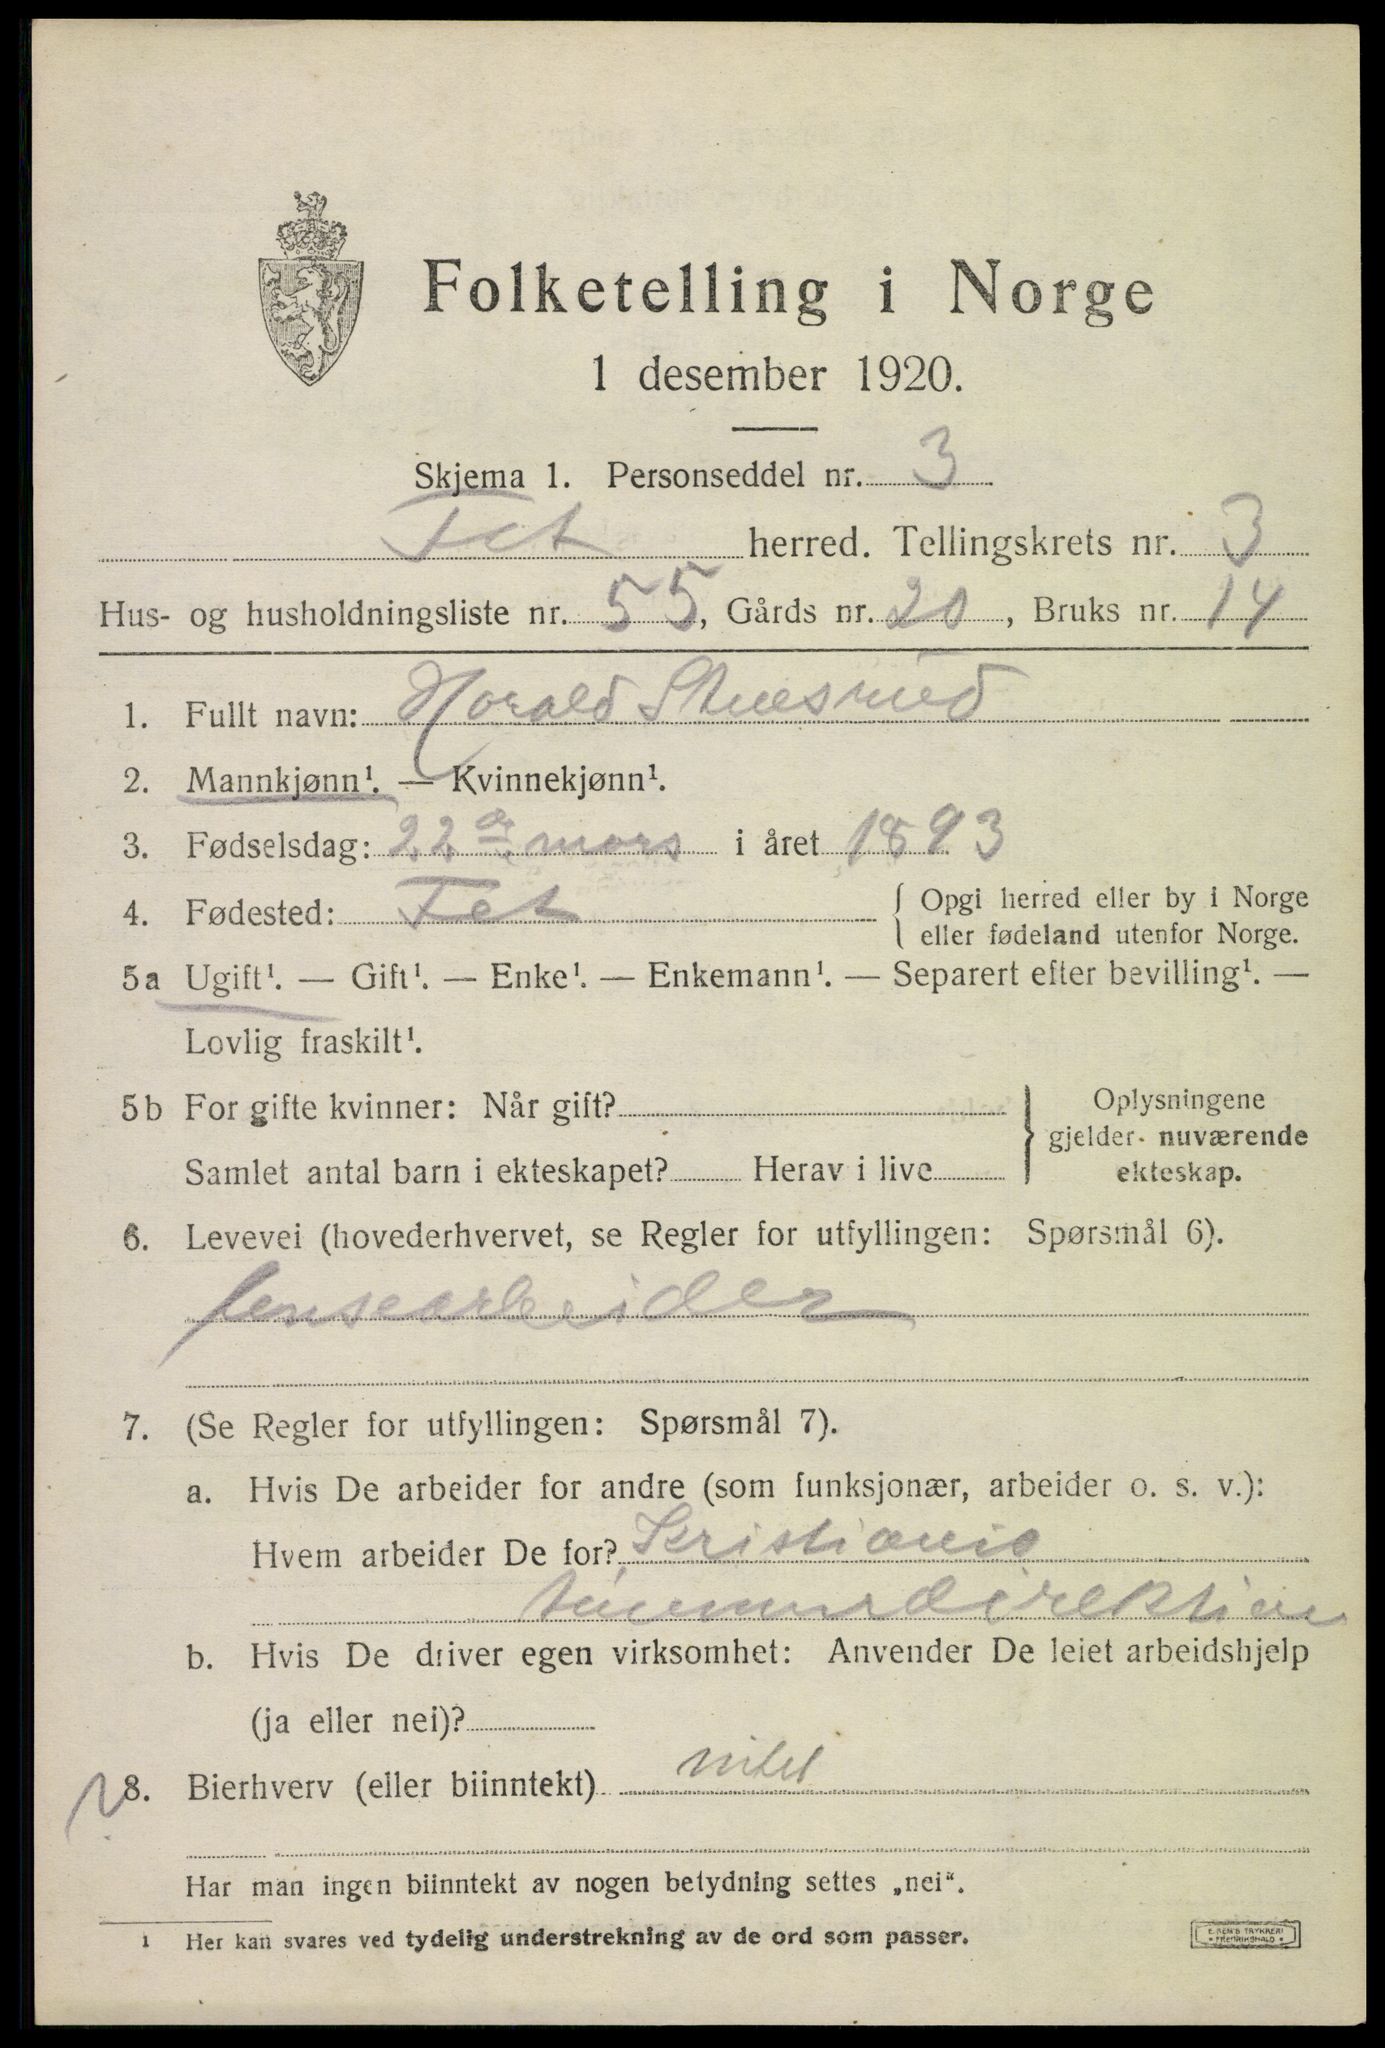 Folketelling i Norge
1 desember 1920.
Skjema 1. Personseddel nr. 3
Fet herred. Tellingskrets nr. 3
Hus- og husholdningsliste nr. 55, Gårds nr. 20, Bruks nr. 14
1. Fullt navn: Harald
2. Mannkjønn¹. — Kvinnekjønn¹.
3. Fødselsdag: 22de mars i året 1893
4. Fødested: Fet { Opgi herred eller by i Norge
eller fødeland utenfor Norge.
5a Ugift¹. — Gift¹. — Enke¹. — Enkemann¹. — Separert efter bevilling¹. —
Lovlig fraskilt¹.
5b For gifte kvinner: Når gift?
Samlet antal barn i ekteskapet? Herav i live
} Oplysningene
gjelder nuværende
ekteskap.
6. Levevei (hovederhvervet, se Regler for utfyllingen: Spørsmål 6).
lensearbeider
7. (Se Regler for utfyllingen: Spørsmål 7).
a. Hvis De arbeider for andre (som funksjonær, arbeider o. s. v.):
Hvem arbeider De for? Kristiania
tømmerdirektion
b. Hvis De driver egen virksomhet: Anvender De leiet arbeidshjelp
(ja eller nei)?
8. Bierhverv (eller biinntekt)
Har man ingen biinntekt av nogen betydning settes „nei“.
1 Her kan svares ved tydelig understrekning av de ord som passer.